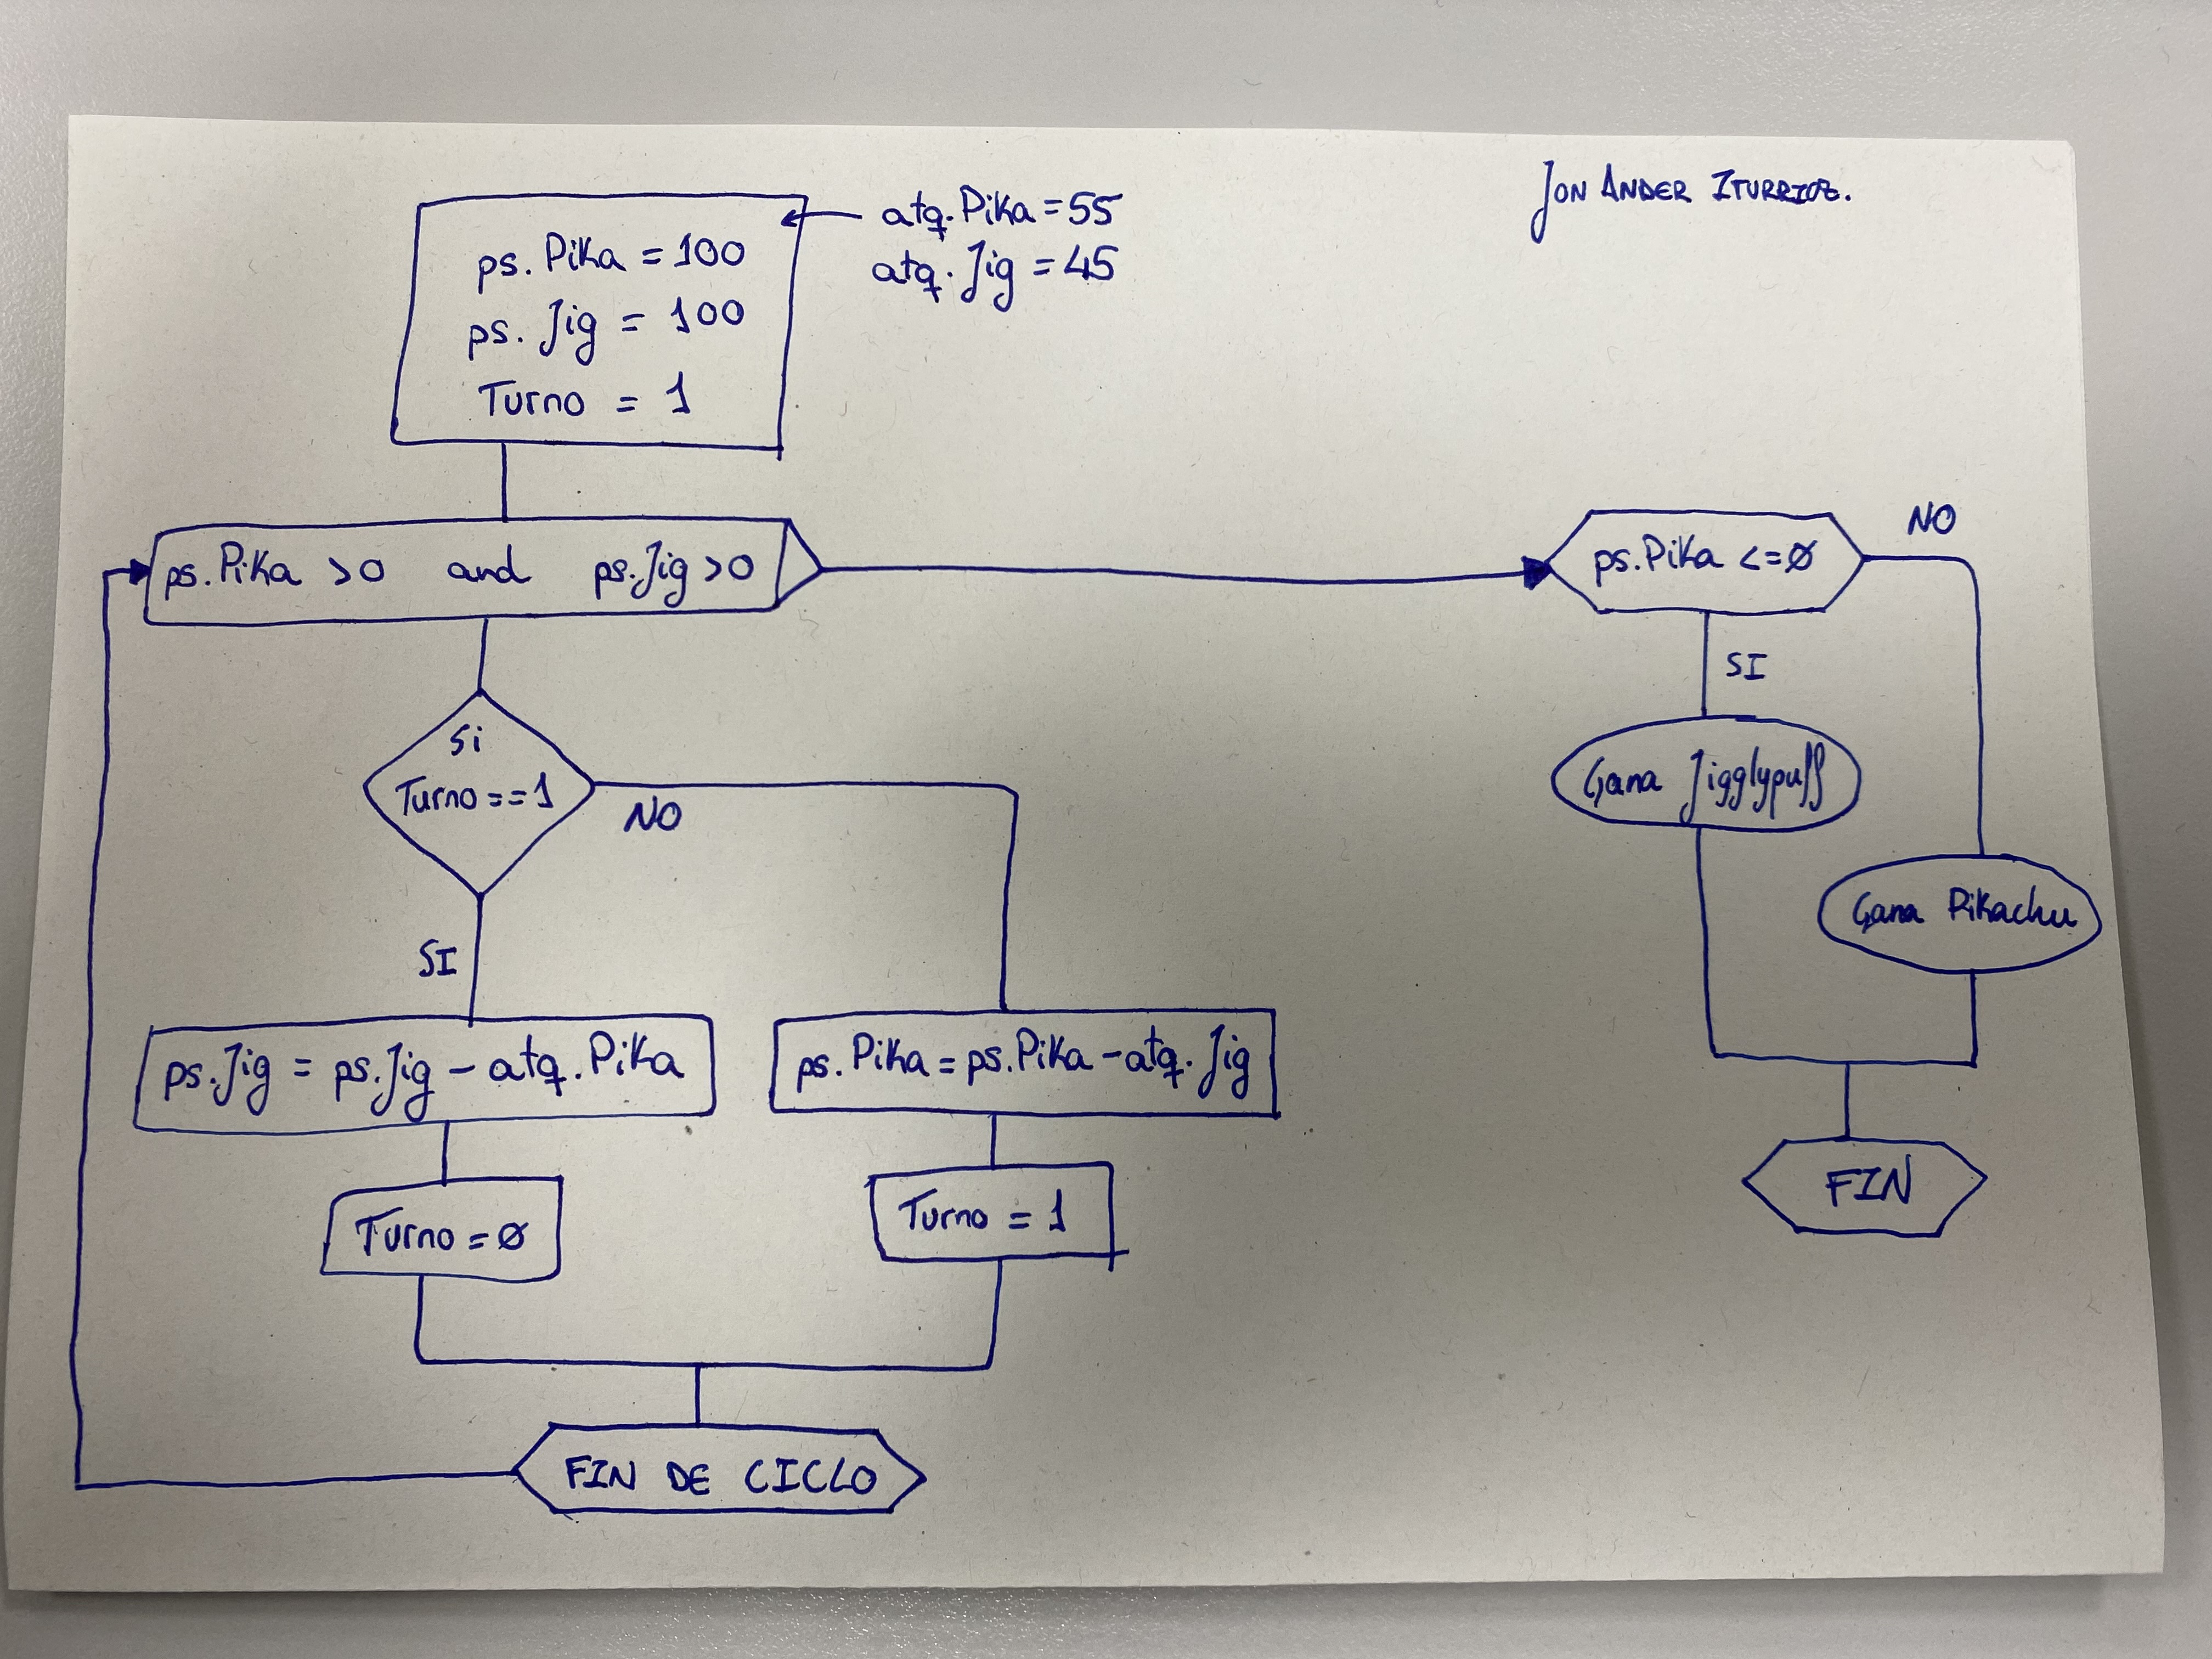 JON ANDER ITURRIOZ.
ps. Pika = 100
ps. Jig = 100
Turno = 1
atq. Pika = 55
atq. Jig = 45
ps. Pika >0 and ps. Jig >0
Si
Turno == 1
NO
SI
ps. Jig = ps. Jig - atq. Pika
ps. Pika = ps. Pika - atq. Jig
Turno = 0
Turno = 1
FIN DE CICLO
ps. Pika <= 0
NO
SI
Gana Jigglypuff
Gana Pikachu
FIN